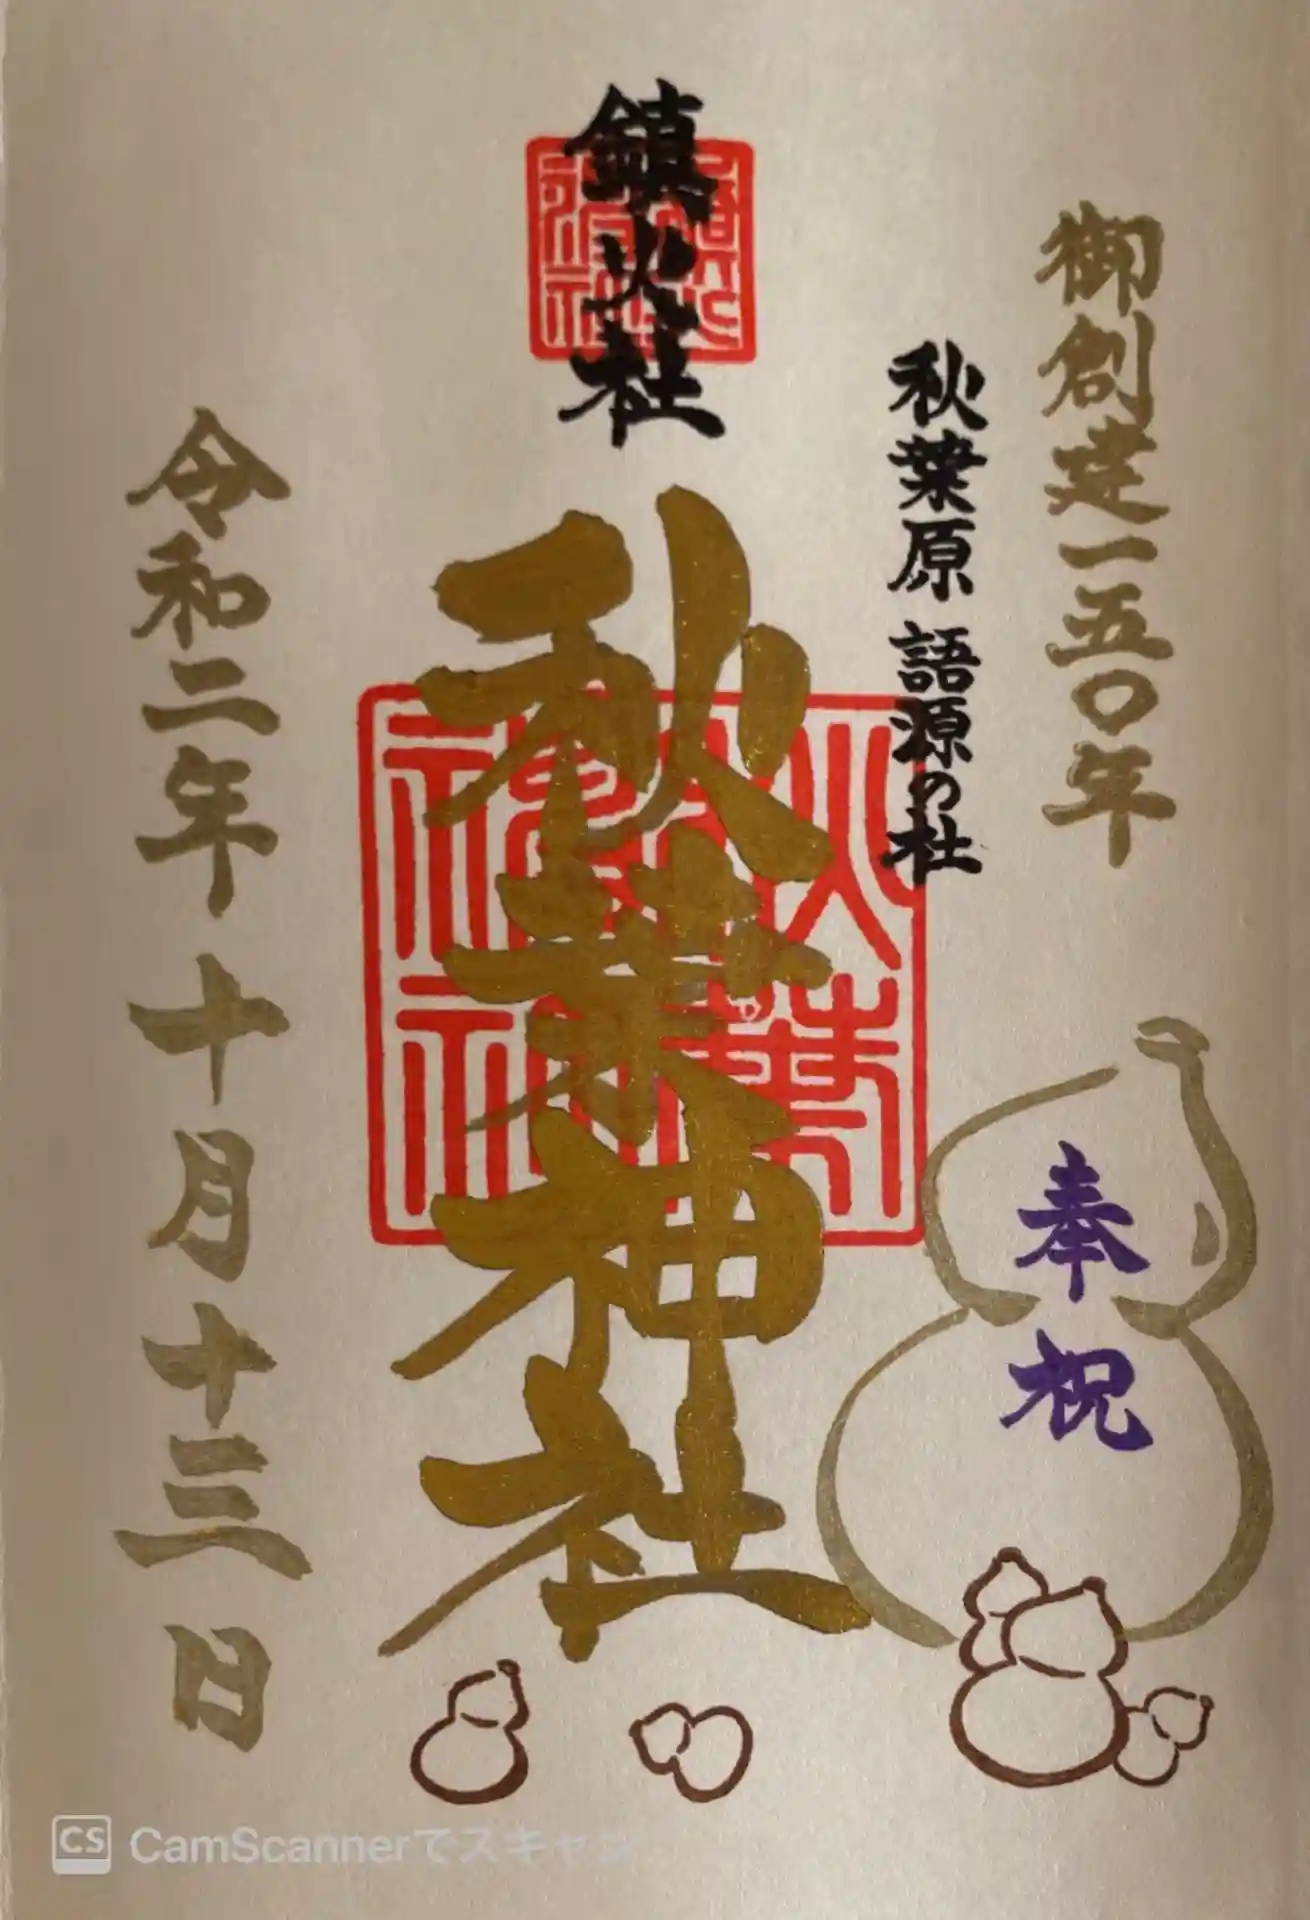 御創建一五〇年
秋葉原 語源の社
奉祝
鎮火社
秋葉神社
令和二年十月十三日
CS CamScannerでスキャン